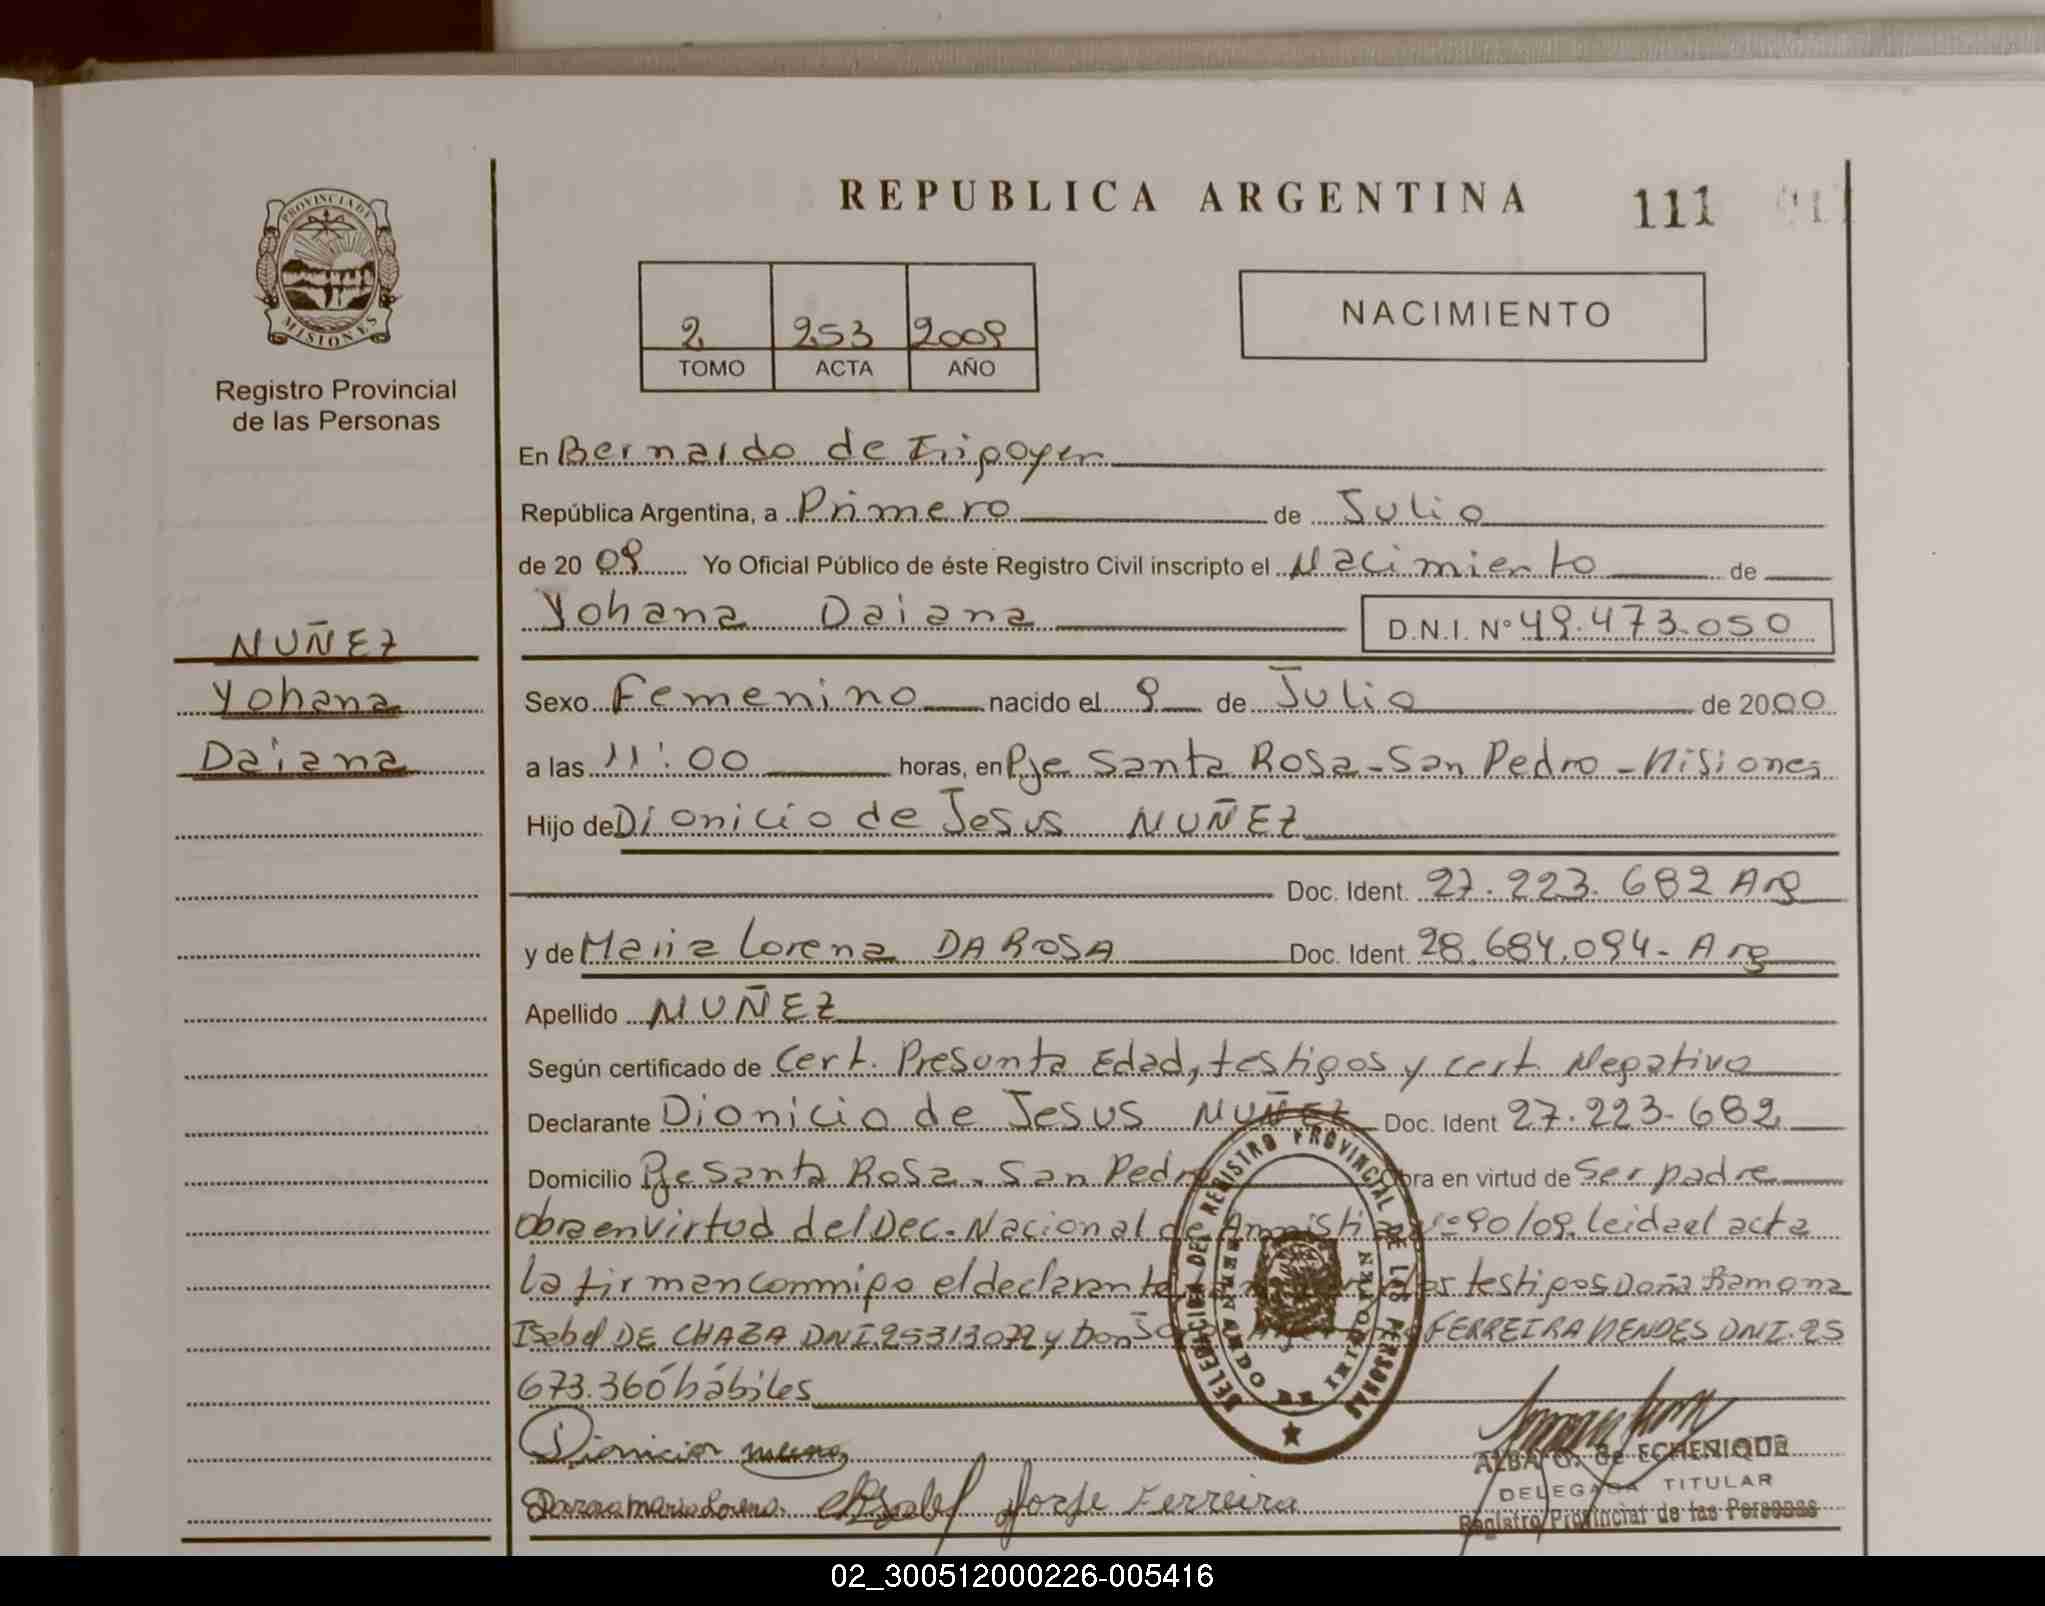 REPUBLICA ARGENTINA
111
PROVINCIA DE
MISIONES
Registro Provincial
de las Personas
2 253 2009
TOMO ACTA AÑO
NACIMIENTO
En Bernardo de Irigoyen
República Argentina, a Primero de Julio
de 20 09 Yo Oficial Público de éste Registro Civil inscripto el Nacimiento de
Yohana Daiana D.N.I. Nº 49.473.050
NUÑEZ
Yohana
Daiana
Sexo Femenino nacido el 9 de Julio de 2000
a las 11:00 horas, en Pje Santa Rosa - San Pedro - Misiones
Hijo de Dionicio de Jesus NUÑEZ
Doc. Ident. 27.223.682 Arg
y de Maria Lorena DA ROSA Doc. Ident. 28.684.094 - Arg
Apellido NUÑEZ
Según certificado de Cert. Presunta Edad, testigos y cert. Negativo
Declarante Dionicio de Jesus NUÑEZ Doc. Ident 27.223.682
Domicilio Pje Santa Rosa. San Pedro Obra en virtud de Ser padre
Obra en Virtud del Dec. Nacional de Amnistia Nº 90/09. Leida el acta
la firman conmigo el declarante testigos Doña Ramona
Isabel DE CHAZA DNI. 25313072 y Don FERREIRA MENDES DNI. 25
673.360 hábiles
Dionicio
Jorge Ferreira
DELEGACION DEL REGISTRO PROVINCIAL DE LAS PERSONAS
BERNARDO DE IRIGOYEN
ALBA G. de ECHENIQUE
DELEGADA TITULAR
Registro Provincial de las Personas
02_300512000226-005416